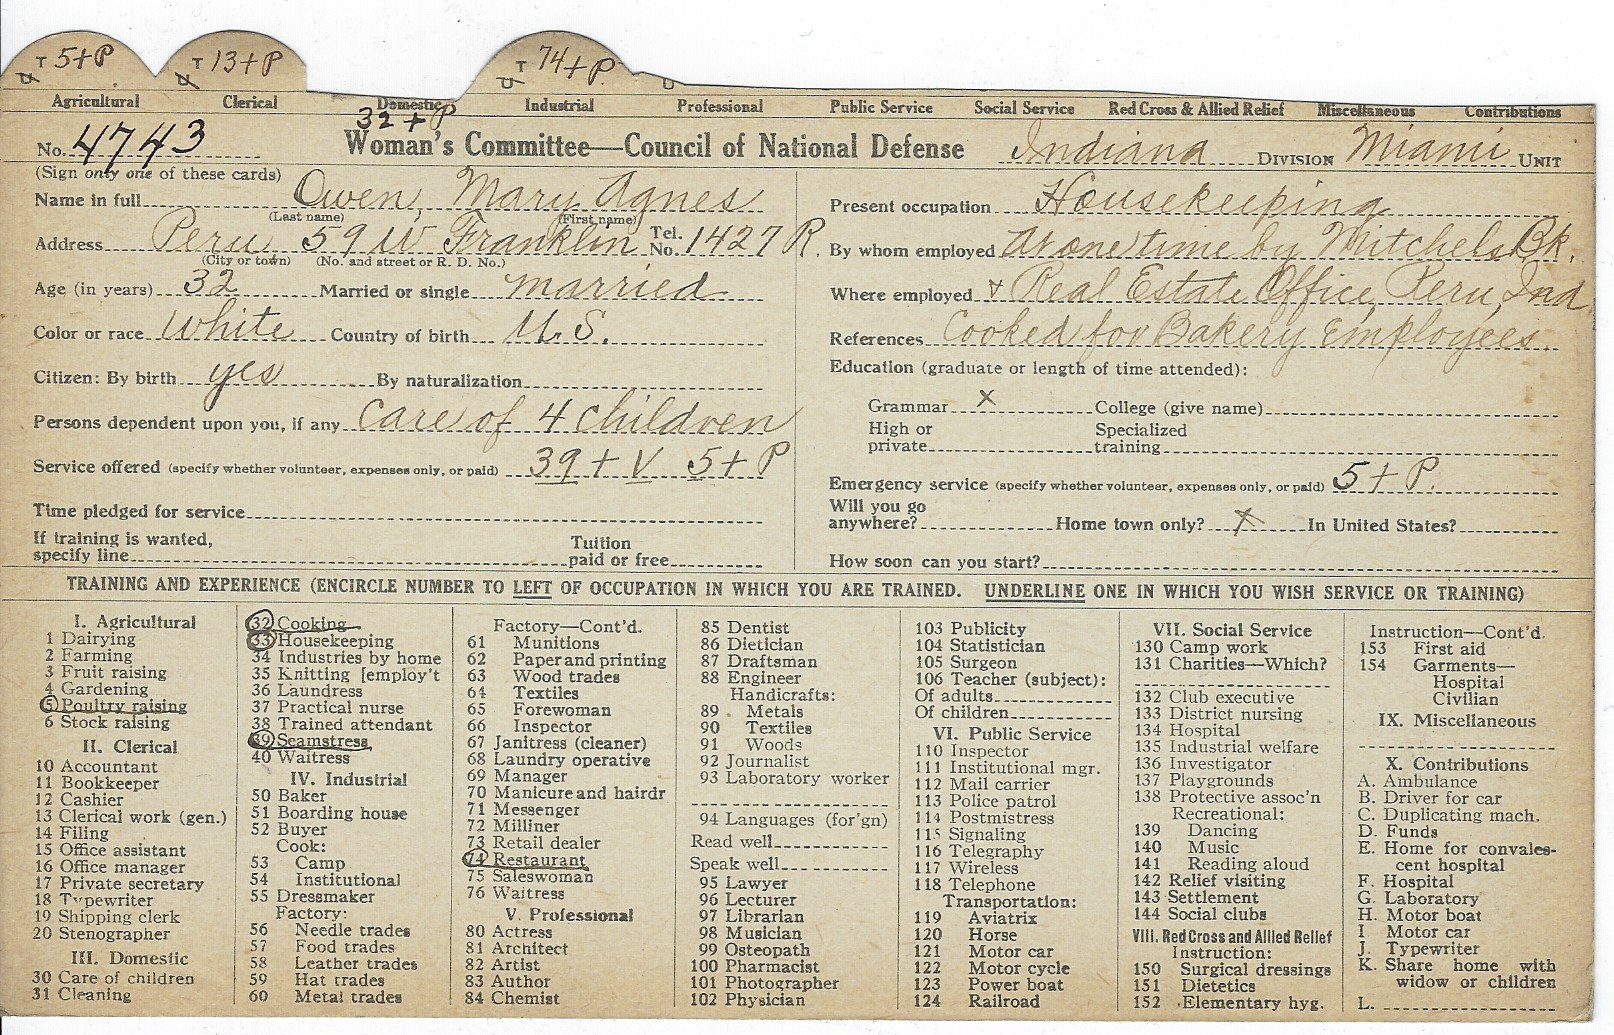 T 5+P T 13+P T 74+P.
Agricultural Clerical Domestic Industrial Professional Public Service Social Service Red Cross & Allied Relief Miscellaneous Contributions
32+P
No. 4743 Woman's Committee—Council of National Defense Indiana DIVISION Miami UNIT
(Sign only one of these cards)
Name in full Owen, Mary Agnes
(Last name) (First name)
Address Peru 59 W Franklin Tel. No. 1427 R.
(City or town) (No. and street or R. D. No.)
Age (in years) 32 Married or single married
Color or race White Country of birth U.S.
Citizen: By birth yes By naturalization
Persons dependent upon you, if any Care of 4 children
Service offered (specify whether volunteer, expenses only, or paid) 39+V 5+P
Time pledged for service
If training is wanted,
specify line Tuition paid or free
Present occupation Housekeeping
By whom employed At one time by Mitchels Bk.
Where employed & Real Estate Office, Peru, Ind
References Cooked for Bakery Employees
Education (graduate or length of time attended):
Grammar X College (give name)
High or private Specialized training
Emergency service (specify whether volunteer, expenses only, or paid) 5+P.
Will you go
anywhere? Home town only? X In United States?
How soon can you start?
TRAINING AND EXPERIENCE (ENCIRCLE NUMBER TO LEFT OF OCCUPATION IN WHICH YOU ARE TRAINED. UNDERLINE ONE IN WHICH YOU WISH SERVICE OR TRAINING)
I. Agricultural
1 Dairying
2 Farming
3 Fruit raising
4 Gardening
5 Poultry raising
6 Stock raising
II. Clerical
10 Accountant
11 Bookkeeper
12 Cashier
13 Clerical work (gen.)
14 Filing
15 Office assistant
16 Office manager
17 Private secretary
18 Typewriter
19 Shipping clerk
20 Stenographer
III. Domestic
30 Care of children
31 Cleaning
32 Cooking
33 Housekeeping
34 Industries by home
35 Knitting [employ't
36 Laundress
37 Practical nurse
38 Trained attendant
39 Seamstress
40 Waitress
IV. Industrial
50 Baker
51 Boarding house
52 Buyer
Cook:
53 Camp
54 Institutional
55 Dressmaker
Factory:
56 Needle trades
57 Food trades
58 Leather trades
59 Hat trades
60 Metal trades
Factory—Cont'd.
61 Munitions
62 Paper and printing
63 Wood trades
64 Textiles
65 Forewoman
66 Inspector
67 Janitress (cleaner)
68 Laundry operative
69 Manager
70 Manicure and hairdr
71 Messenger
72 Milliner
73 Retail dealer
74 Restaurant
75 Saleswoman
76 Waitress
V. Professional
80 Actress
81 Architect
82 Artist
83 Author
84 Chemist
85 Dentist
86 Dietician
87 Draftsman
88 Engineer
Handicrafts:
89 Metals
90 Textiles
91 Woods
92 Journalist
93 Laboratory worker
94 Languages (for'gn)
Read well
Speak well
95 Lawyer
96 Lecturer
97 Librarian
98 Musician
99 Osteopath
100 Pharmacist
101 Photographer
102 Physician
103 Publicity
104 Statistician
105 Surgeon
106 Teacher (subject):
Of adults
Of children
VI. Public Service
110 Inspector
111 Institutional mgr.
112 Mail carrier
113 Police patrol
114 Postmistress
115 Signaling
116 Telegraphy
117 Wireless
118 Telephone
Transportation:
119 Aviatrix
120 Horse
121 Motor car
122 Motor cycle
123 Power boat
124 Railroad
VII. Social Service
130 Camp work
131 Charities—Which?
132 Club executive
133 District nursing
134 Hospital
135 Industrial welfare
136 Investigator
137 Playgrounds
138 Protective assoc'n
Recreational:
139 Dancing
140 Music
141 Reading aloud
142 Relief visiting
143 Settlement
144 Social clubs
VIII. Red Cross and Allied Relief
Instruction:
150 Surgical dressings
151 Dietetics
152 Elementary hyg.
Instruction—Cont'd.
153 First aid
154 Garments—
Hospital
Civilian
IX. Miscellaneous
X. Contributions
A. Ambulance
B. Driver for car
C. Duplicating mach.
D. Funds
E. Home for convales-
cent hospital
F. Hospital
G. Laboratory
H. Motor boat
I Motor car
J. Typewriter
K. Share home with
widow or children
L.